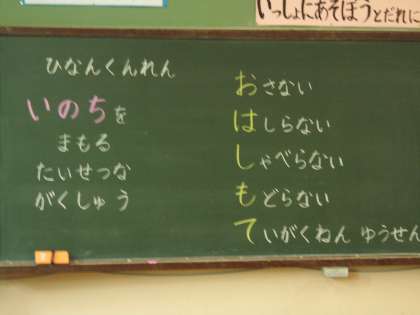 いっしょにあそぼうとだれに
ひなんくんれん
いのちを
まもる
たいせつな
がくしゅう
おさない
はしらない
しゃべらない
もどらない
ていがくねん ゆうせん